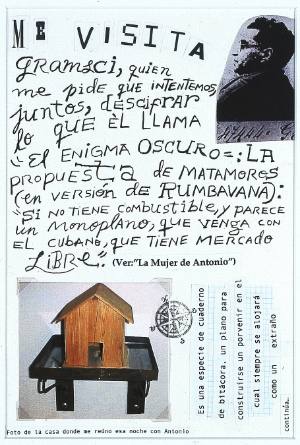 ME VISITA
GRAMSCI, quien
me pide que intentemos,
juntos, descifrar
lo que èl llama
"El ENIGMA OSCURO=: LA
PROPUESTA DE MATAMOROS
(en VERSIÓN DE RUMBAVANA):
"SI NO TIENE COMBUSTIBLE, Y PARECE
un MONOPLANO, QUE VENGA CON
EL CUBANO, QUE TIENE MERCADO
LIBRE". (Ver:"La Mujer de Antonio")
Es una especie de cuaderno
de bitácora, un plano para
construirse un porvenir en el
cual siempre se alojará
como un extraño
continúa.
Foto de la casa donde me reúno esa noche con Antonio